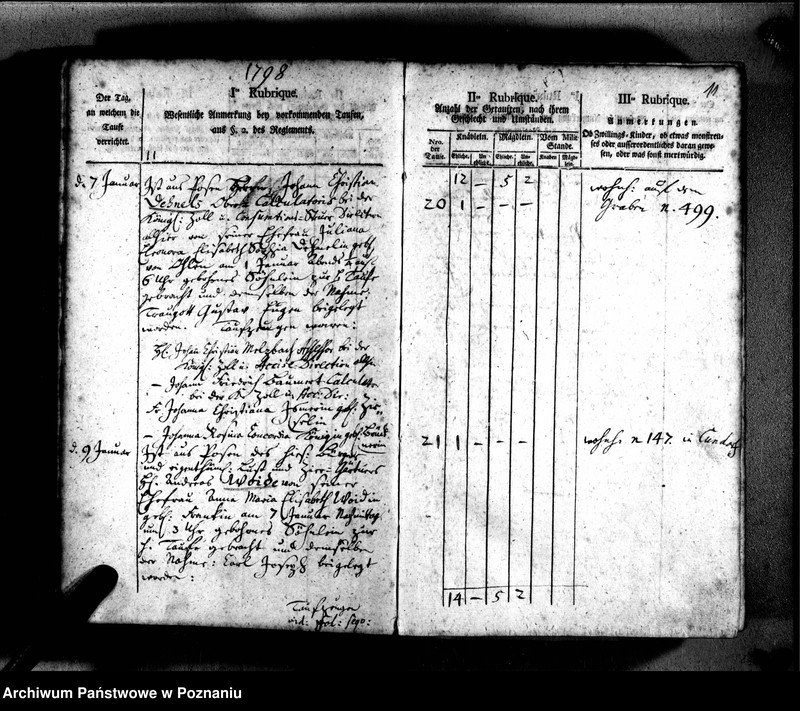 1798
Der Tag,
an welchem die
Taufe
verrichtet.
Iste Rubrique.
Wesentliche Anmerkung bey vorkommenden Taufen,
aus §. 2. des Reglements.
d. 7 Januar
Ist aus Posen Johann Christian
Dehnels Ober Calculatoris bei der
Königl: Zoll u. Consumtions-Steuer Direction
allhier von seiner Ehefrau Juliana
Eleonora Elisabeth Sophia Dehnelin geb:
von am Januar Abends
6 Uhr gebohrnes Söhnlein zur h Taufe
gebracht und demselben der Nahme:
Traugott Gustav Eugen beigelegt
worden. Taufzeugen waren:
H. Johan Christian Melzbach bei der
Königl: Zoll u. Accise-Direction allh:
– Johann Friedrich Baumert Calculator
bei der K Zoll u. Acc: Dir:
Fr Johanna Christiana geb:
– Johanna Rosina Concordia Königin geb:
d. 9 Januar
Ist aus Posen des hies: Bürger
und eigenthüml: Lust und Zier-Gärtners
H. Andreas Woide von seiner
Ehefrau Anna Maria Elisabeth Woidin
geb: Frankin am 7 Januar Nachmittag
um 3 Uhr gebohrnes Söhnlein zur
h. Taufe gebracht und demselben
der Nahme: Carl Joseph beigelegt
worden:
Taufzeugen
vid: fol: seqv:
11
IIte Rubrique.
Anzahl der Getauften, nach ihrem
Geschlecht und Umständen.
Nro. der Taufe.
Knäblein. Mägdlein. Vom Milit. Stande.
Eheliche. Uneheliche. Eheliche. Uneheliche. Knaben Mägdlein.
12 – 5 2
20 1 – – –
21 1 – – –
14 – 5 2
IIIte Rubrique.
Anmerkungen
Ob Zwillings-Kinder, ob etwas monstreuses
oder ausserordentliches daran gewesen,
oder was sonst merkwürdig.
wohnh: auf dem
Graben N. 499.
wohnh: N 147. in
Archiwum Państwowe w Poznaniu